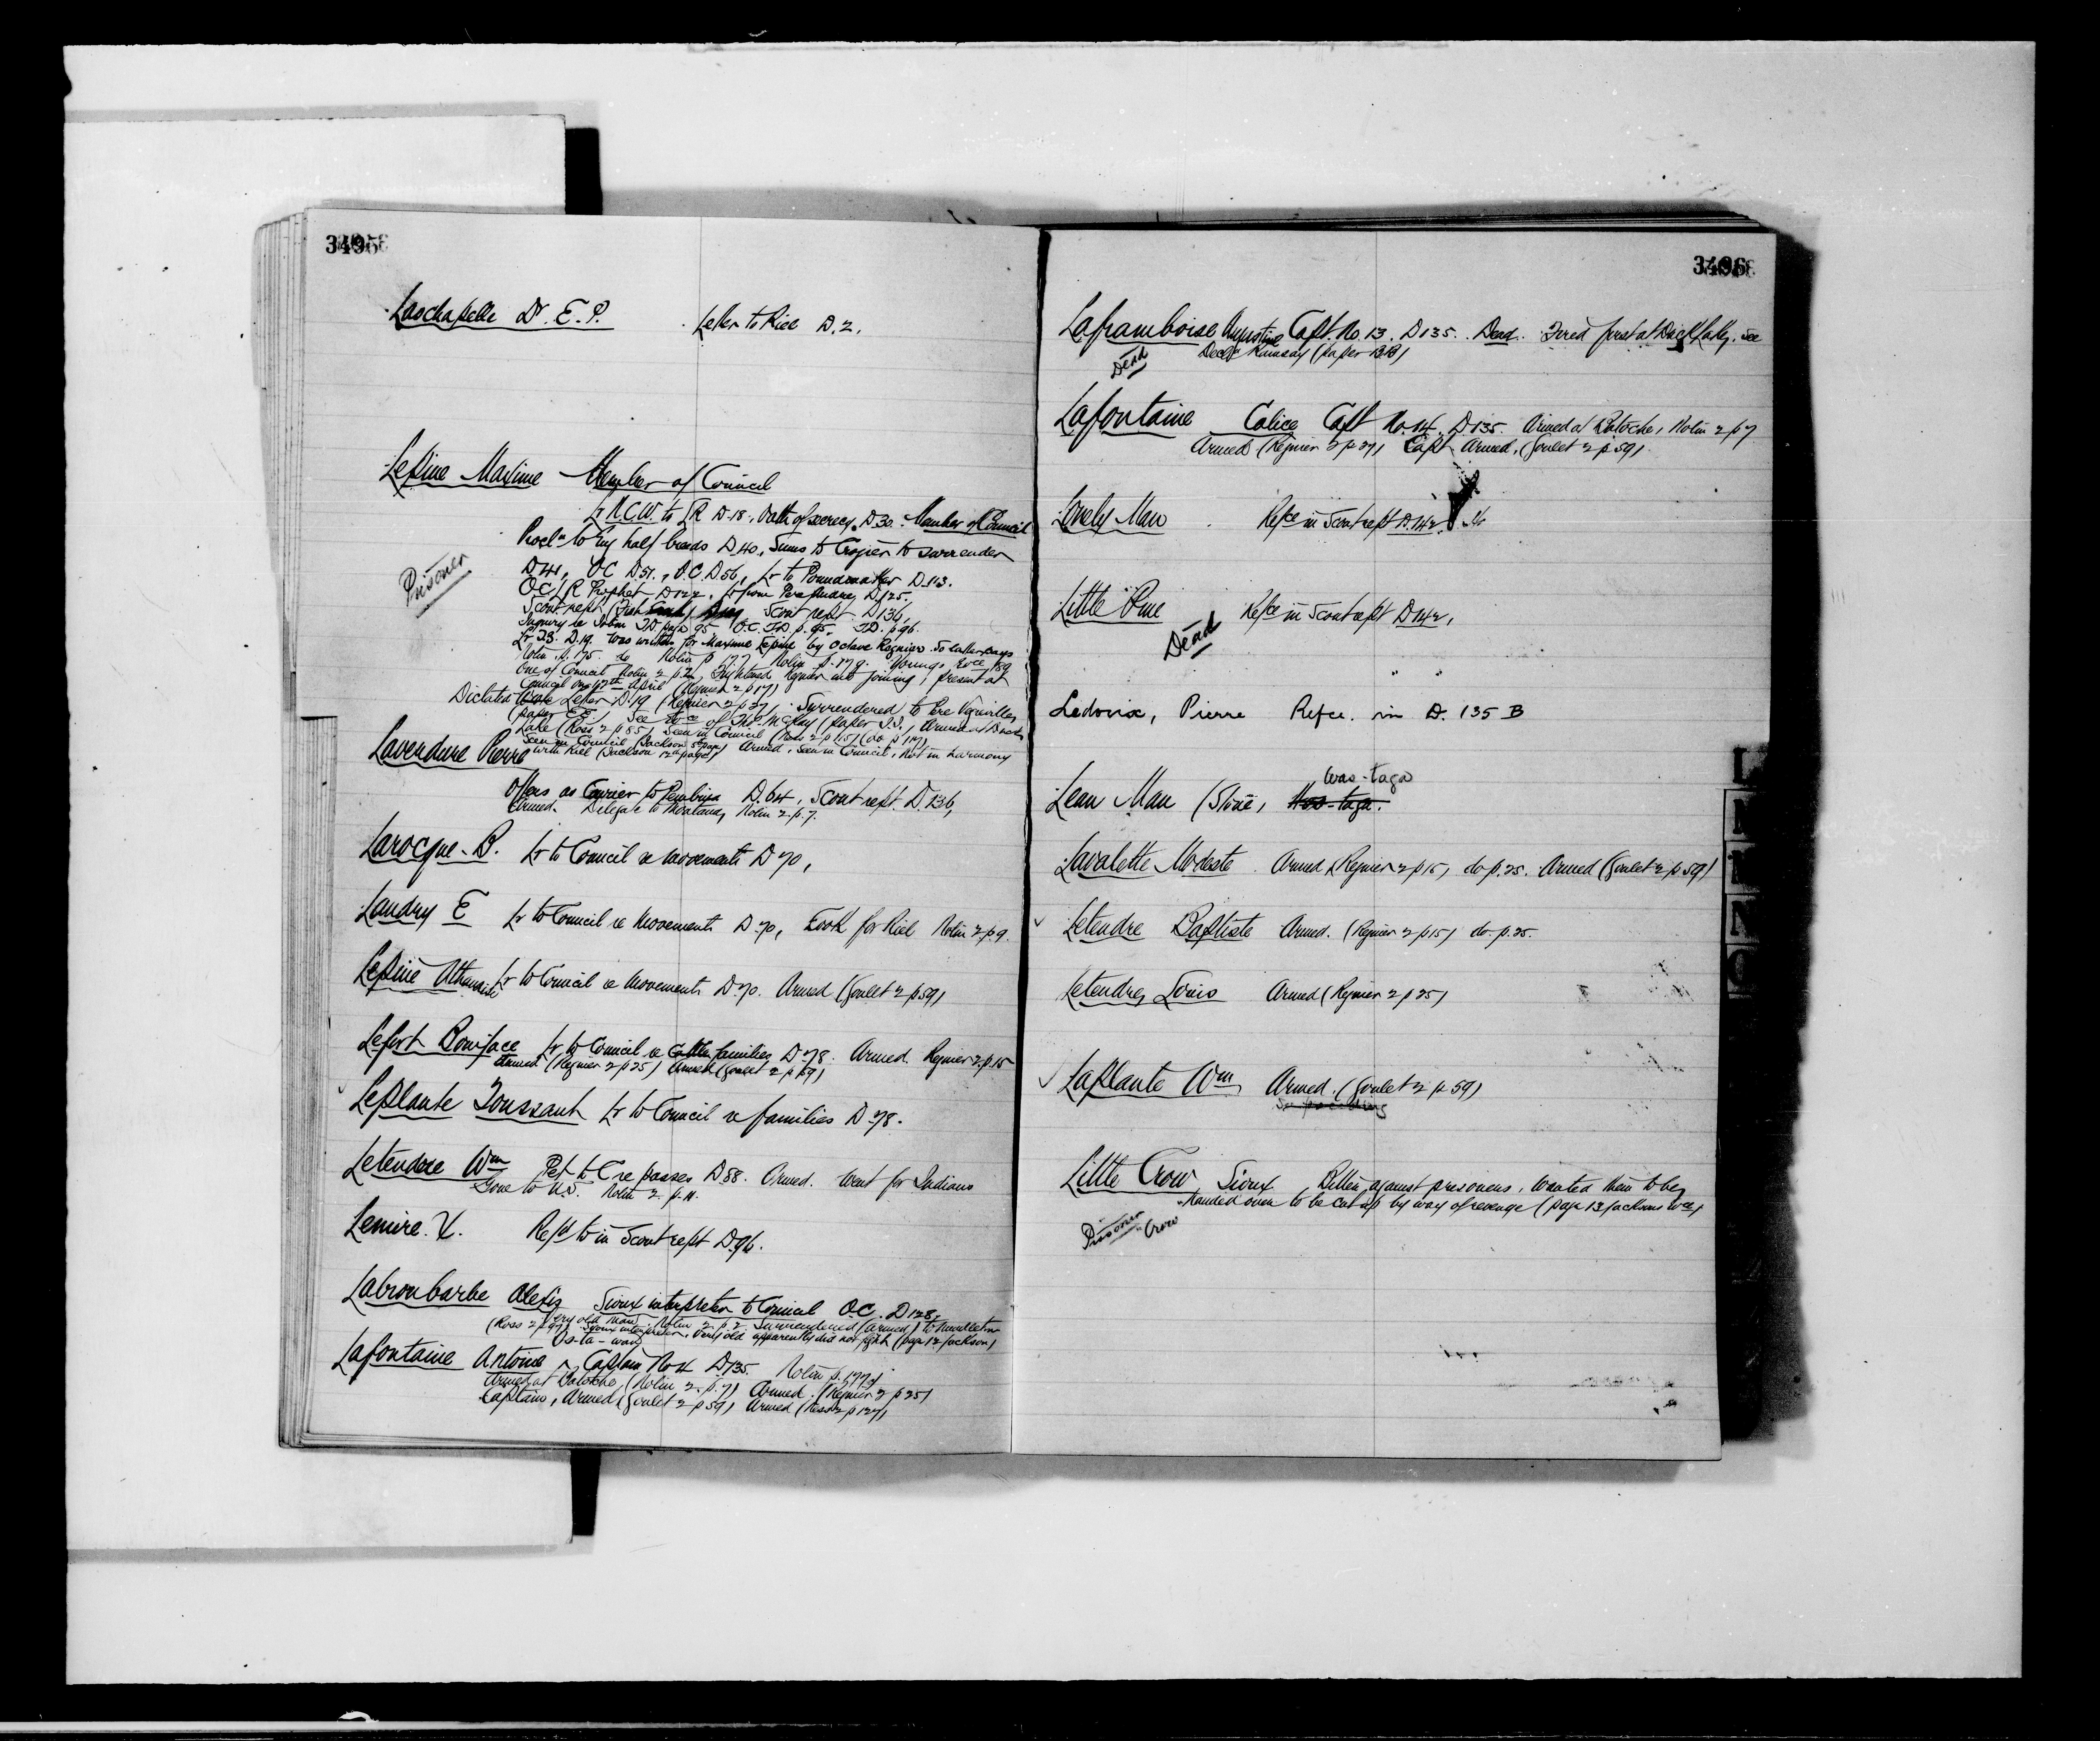 3495
Laschapelle Dr. E. P. Letter to Riel D. 2.
Lepine Maxime Member of Council
Lr N.C.W. to LR D 18, Oath of secrecy D 30. Member of Council
Procln to Eng half breeds D 40, Sums to Crozier to surrender
Prisoner
D 41, OC D 51, O.C. D 56, Lr to Poundmaker D 113.
OC LR Prophet D 122, Lr from D 125,
Scout rept Scout rept D 136,
Inquiry re Nolin page 95 O.C. p. 95, p 96.
Lr D. 19. was written for Maxime Lepine by Octave Regnier. So latter says
Nolin p. 175. do Nolin p 177 Nolin p. 179. Youngs Evce p 89
One of Council Nolin 2 p. 2, Frightened Regnier into joining, present at
Council on 17th April (Regnier 2 p 17)
Dictated Letter D. 19 (Regnier 2 p 37), Surrendered to Pere Vegreville
(paper EE), See Evce of Thos. McKay (paper ), Armed at Duck
Lake (Ross 2 p 85) Seen in Council (Ross 2 p 115) (do p 117)
Seen in Council (Jackson 5 page) Armed, Seen in Council, Not in harmony
with Riel (Jackson 12th page)
Lavendure Pierre
Offers as Courier to Pembina D. 64, Scout rept. D. 136,
Armed. Delegate to Montana, Nolin 2. p. 7.
Larocque. B. Lr to Council re movements D 70,
Landry E Lr to Council re movements D 70, Took for Riel Nolin 2 p. 9.
Lepine Athanaise Lr to Council re movements D. 70. Armed (Goulet 2 p. 59)
Lefort Boniface Lr to Council re Cattle families D 78. Armed. Regnier 2. p. 15
Armed (Regnier 2 p 25) Armed (Goulet 2 p 59)
Leplante Toussant Lr to Council re families D 78.
Letendre Wm Pet to C re passes D. 88. Armed. Went for Indians
Gone to U.S. Nolin 2. p. 11.
Lemire. X. Refd to in Scout rept D. 96.
Labroubarbe Alexis Sioux interpreter to Council OC. D 128,
Very old man. Nolin 2 p. 2 Surrendered (armed) to Middleton
(Ross 2 p 97) Sioux interpreter, Very old apparently did not fight (page 12 Jackson)
Os-ta-way
Lafontaine Antoine ^ Captain No 11 D 135. Nolin p. 177
Armed at Batoche (Nolin 2. p. 7) Armed. (Regnier 2 p 25)
Captain, Armed (Goulet 2 p 59) Armed (Ross 2 p 127)
3496
Laframboise Augustine Capt. No. 13. D 135. Dead. Fired first at Duck Lake, See
Dead Declr Ramsay (paper BB)
Lafontaine Calice Capt No. 14. D. 135. Armed at Batoche, Nolin 2 p 7
Armed (Regnier 2 p 27) Capt Armed, (Goulet 2 p 59)
Lonely Man Refce in Scout rept D. 142.
Little Pine Refce in Scout rept D 142,
Dead
Ledoux, Pierre Refce. in D. 135 B
Was-taga
Lean Man (Stone,
Lavalette Modeste Armed (Regnier 2 p 15) do p. 25. Armed (Goulet 2 p 59)
Letendre Baptiste Armed. (Regnier 2 p 15) do. p. 25.
Letendre, Louis Armed (Regnier 2 p 25)
Laplante Wm Armed. (Goulet 2 p 59)
Little Crow Sioux Bitter against prisoners, wanted them to be
handed over to be cut up by way of revenge (page 13 Jacksons Evce)
Prisoner
Crow
L
M
N